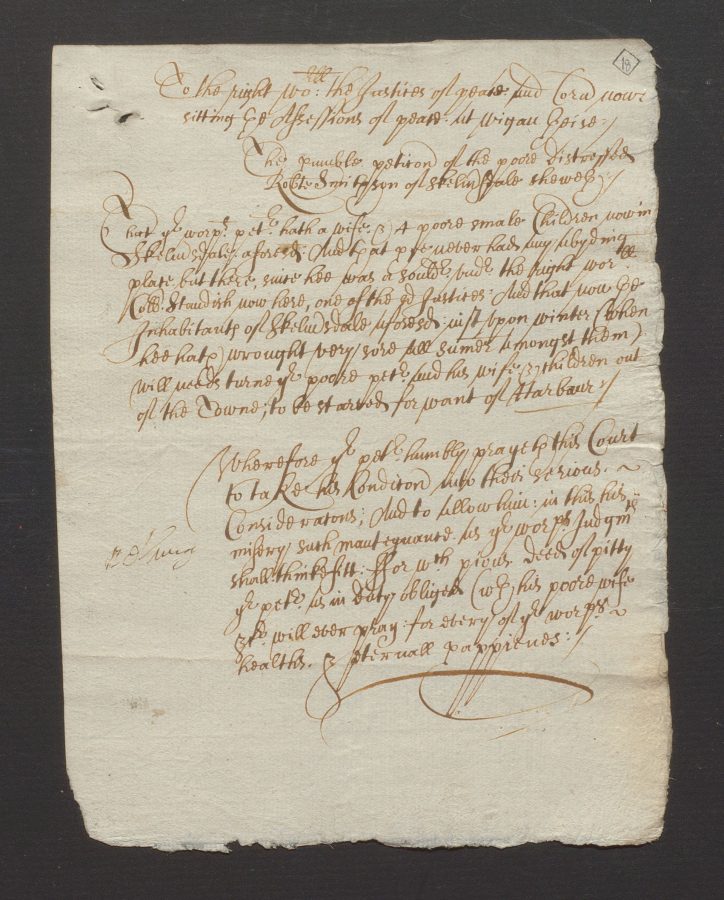 18
To the right wo:ll the Justices of peace and Coru now
sitting the Assessions of peace: at Wigan heise:/
The humble peticon of the poore distressed
Robte Smithson of Skelmsdale sheweth:/
That yr worps petr hath a wife, & 4 poore smale Children now in
Skelmsdale aforesd: And that hee never had any abyding
place but there, since hee was a souldr undr the right worll
Coll: Standish now here, one of the sd Justices: And that now the
Inhabitants of Skelmsdale aforesd: just upon winter (when
hee hath wrought very sore all sumer amongst them)
will needs turne yr poore petr and his wife & children out
of the Towne; to be starved for want of Harbaur:/
Wherefore yr petr humbly prayeth this Court
to take his Conditon into theer serious ~
Consideratons; And to allow him: in this his
misery such mantegnance as yr worps Judgmts
shall thinke fitt: ffor wch pious deed of pitty
yr petr as in duty obliged (wth) his poore wife
&c. will ever pray: for every of yr worps ~
healths. & Eternall happienes:/